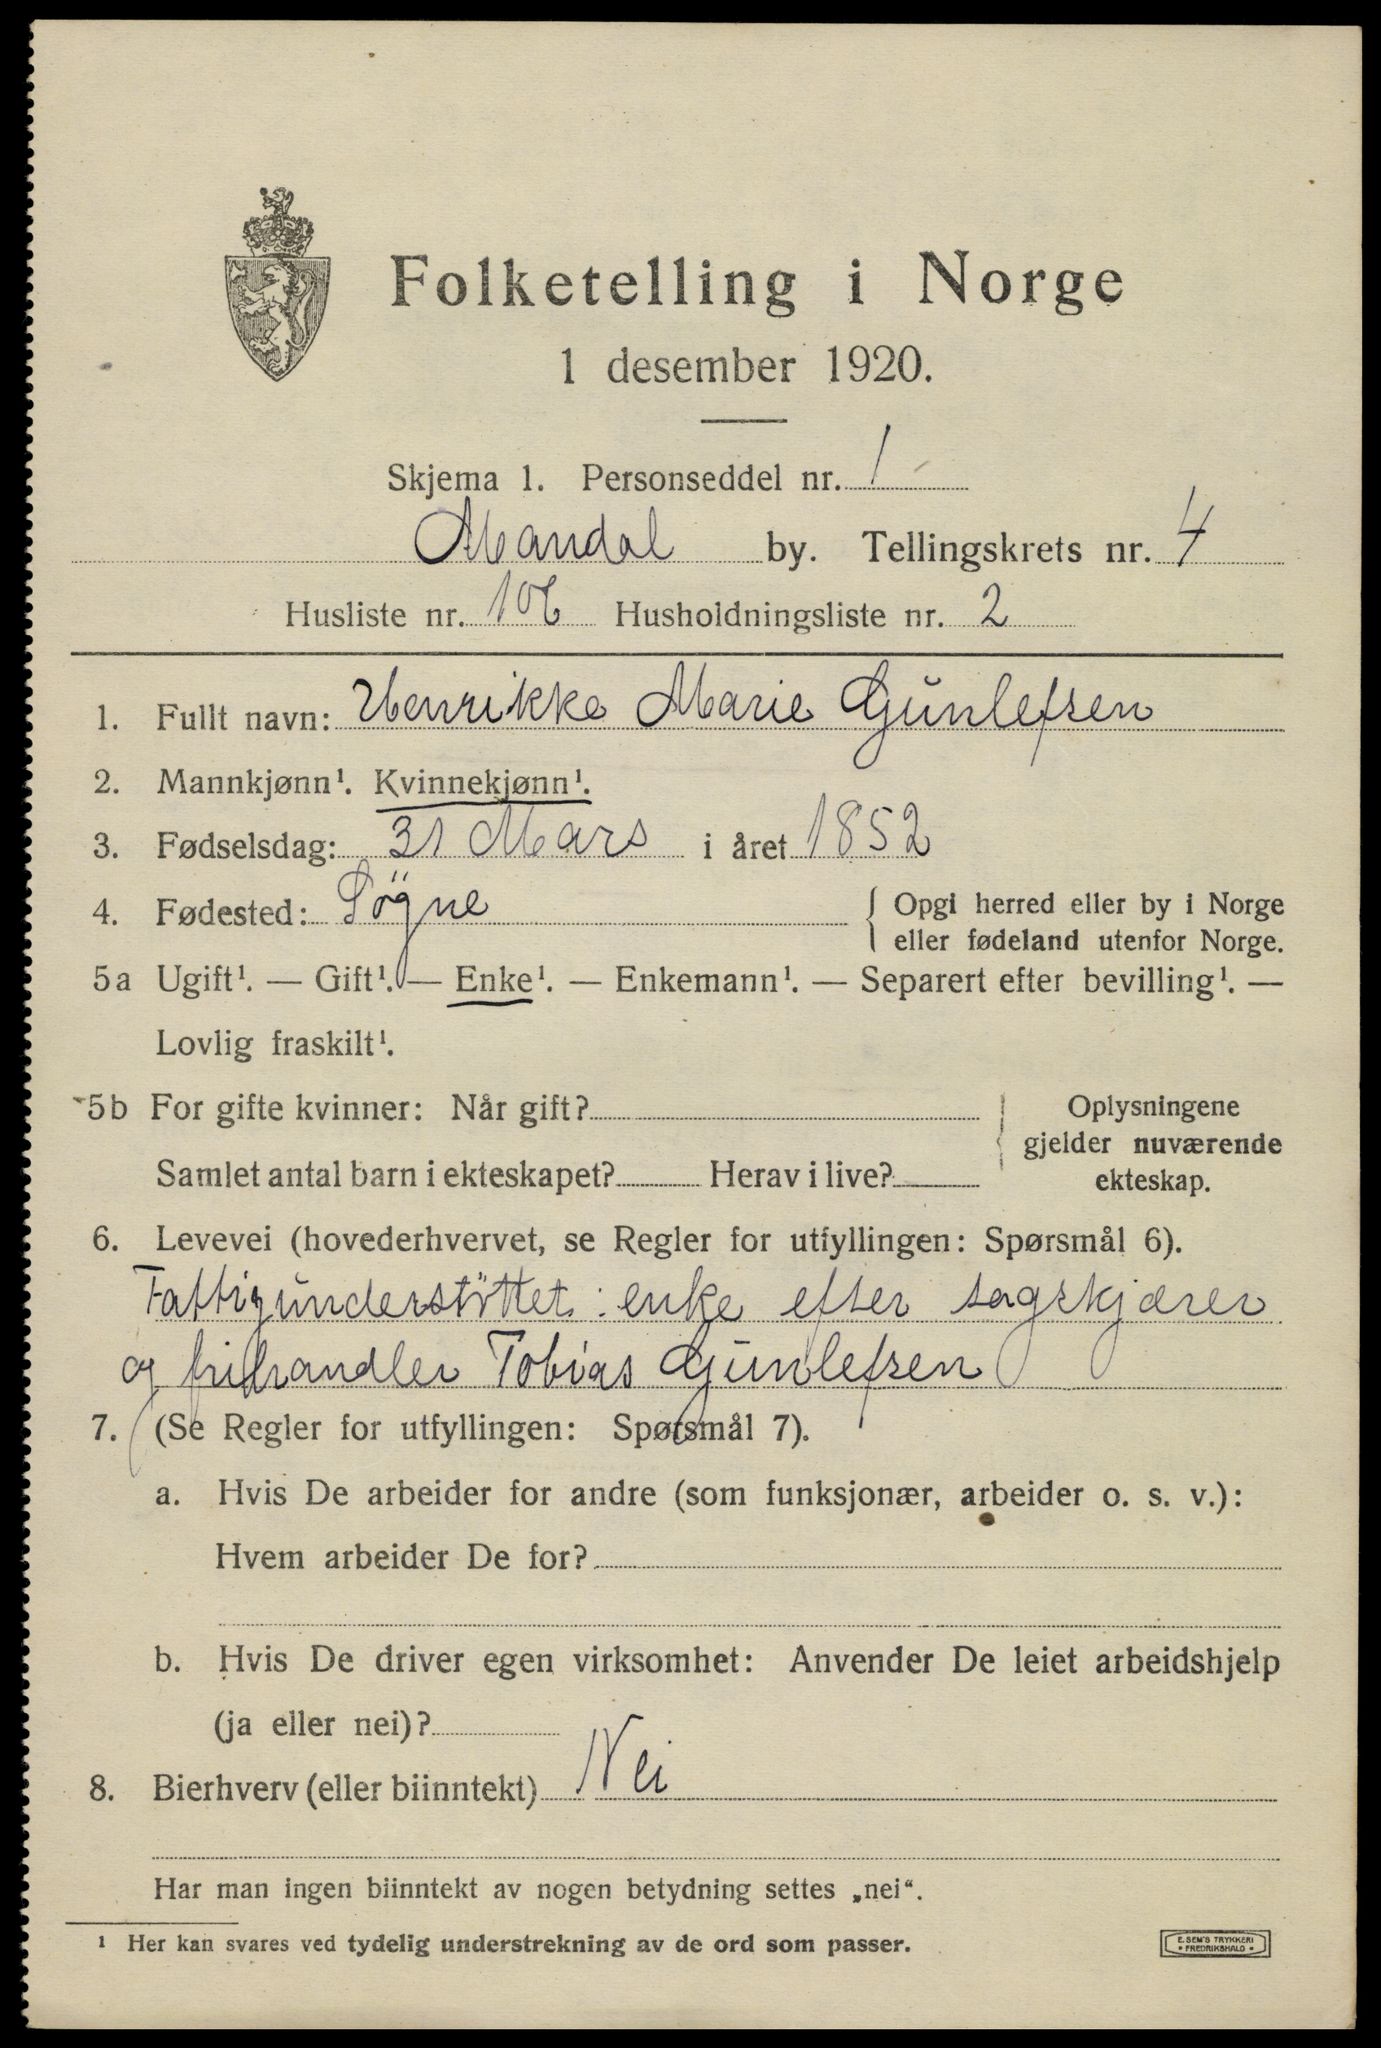 Folketelling i Norge
1 desember 1920.
Skjema 1. Personseddel nr. 1
Mandal by. Tellingskrets nr. 4
Husliste nr. 106 Husholdningsliste nr. 2
1. Fullt navn: Henrikke Marie Gŭnlefsen
2. Mannkjønn¹. Kvinnekjønn¹.
3. Fødselsdag: 31 Mars i året 1852
4. Fødested: Sögne { Opgi herred eller by i Norge
eller fødeland utenfor Norge.
5a Ugift¹. — Gift¹. — Enke¹. — Enkemann¹. — Separert efter bevilling¹. —
Lovlig fraskilt¹.
5b For gifte kvinner: Når gift? Oplysningene
gjelder nuværende
Samlet antal barn i ekteskapet? Herav i live? ekteskap.
6. Levevei (hovederhvervet, se Regler for utfyllingen: Spørsmål 6).
Fattigŭnderstöttet: enke efter sagskjærer
og frihandler Tobias Gŭnlefsen
7. (Se Regler for utfyllingen: Spørsmål 7).
a. Hvis De arbeider for andre (som funksjonær, arbeider o. s. v.):
Hvem arbeider De for?
b. Hvis De driver egen virksomhet: Anvender De leiet arbeidshjelp
(ja eller nei)?
8. Bierhverv (eller biinntekt) Nei
Har man ingen biinntekt av nogen betydning settes „nei“.
¹ Her kan svares ved tydelig understrekning av de ord som passer.
E. SEM'S TRYKKERI
• FREDRIKSHALD •